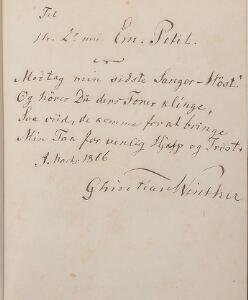 Til
Hr. Dr. med. Em. Petit.
Modtag min sidste Sanger-Høst!
Og hører Du dens Toner klinge,
Saa viid, de komme for at bringe
Min Tak for venlig Hjælp og Trøst.
1866
Christian Winther